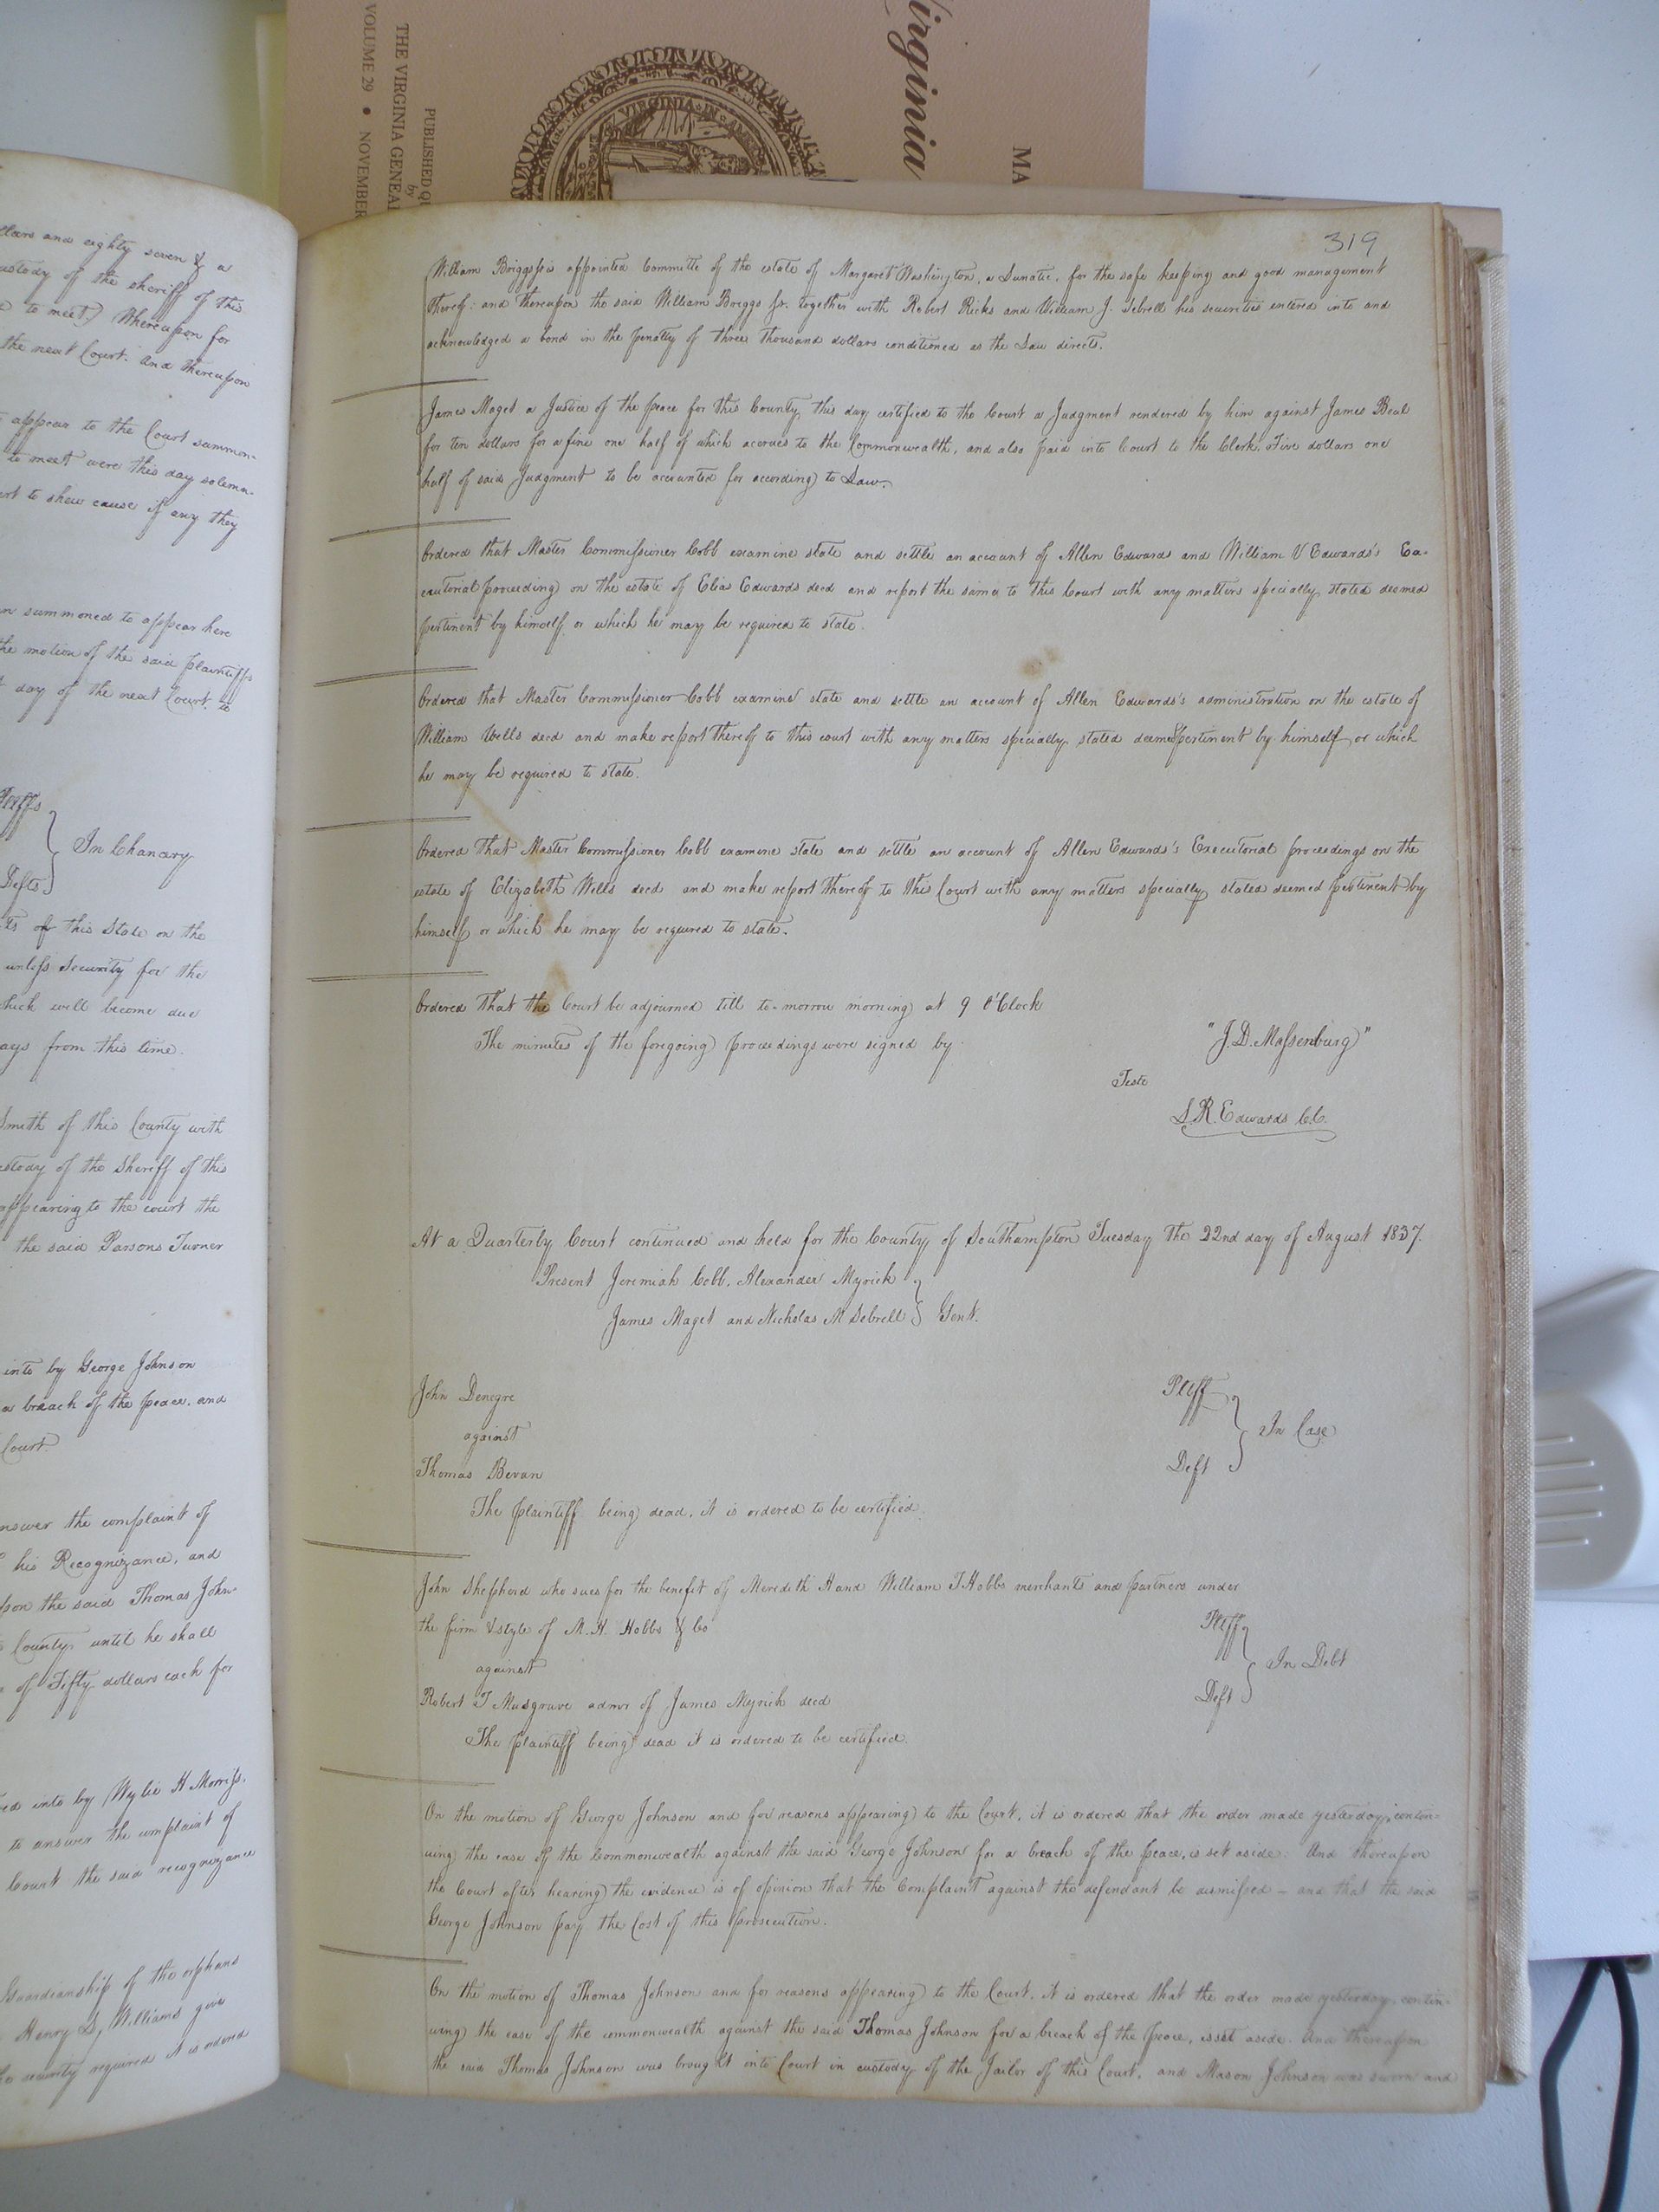 Virginia
MA
PUBLISHED
by
THE VIRGINIA GENEA
VOLUME 29 • NOVEMBER
VIRGINIA
llars and eighty seven & a
ustody of the sheriff of this
to meet) Whereupon for
the next Court. And thereupon
appear to the Court summon-
to meet were this day solemn-
to shew cause if any they
summoned to appear here
the motion of the said plaintiffs
day of the next Court to
Pltffs
In Chancery
Defts
of this State on the
unless Security for the
which will become due
ays from this time.
Smith of this County with
custody of the Sheriff of this
appearing to the court the
the said Parsons Turner
into by George Johnson
a breach of the peace, and
Court
answer the complaint of
his Recognizance, and
upon the said Thomas John-
County until he shall
of Fifty dollars each for
ed into by Wylie H Morriss.
to answer the complaint of
Court the said recognizance
Guardianship of the orphans
Henry D, Williams give
security required it is ordered
319
William Briggs Jr is appointed Committe of the estate of Margaret Washington, a Lunatic, for the safe keeping and good management
thereof: and thereupon the said William Briggs Jr. together with Robert Ricks and William J. Sebrell his securities entered into and
acknowledged a bond in the penalty of three thousand dollars conditioned as the Law directs.
James Maget a Justice of the peace for this County this day certified to the Court a Judgment rendered by him against James Beal
for ten dollars for a fine one half of which accrues to the Commonwealth, and also paid into Court to the Clerk, Five dollars one
half of said Judgment to be accounted for according to Law.
Ordered that Master Commissioner Cobb examine state and settle an account of Allen Edwards and William V Edwards's Ex-
ecutorial proceeding on the estate of Elias Edwards decd and report the same to this Court with any matters specially stated deemed
pertinent by himself, or which he may be required to state.
Ordered that Master Commissioner Cobb examine state and settle an account of Allen Edwards's administration on the estate of
William Wells decd and make report thereof to this court with any matters specially stated deemed pertinent by himself, or which
he may be required to state.
Ordered that Master Commissioner Cobb examine state and settle an account of Allen Edwards's Executorial proceedings on the
estate of Elizabeth Wells decd and make report thereof to this Court with any matters specially stated deemed pertinent by
himself, or which he may be required to state.
Ordered that the Court be adjourned till to-morrow morning at 9 O'Clock
The minutes of the foregoing proceedings were signed by
"J. D. Massenburg"
Teste
L. R. Edwards C.C.
At a Quarterly Court continued and held for the County of Southampton Tuesday the 22nd day of August 1837.
Present Jeremiah Cobb, Alexander Myrick
James Maget and Nicholas M Sebrell } Gent.
John Denegre Pltff
against In Case
Thomas Bevan Deft
The plaintiff being dead, it is ordered to be certified.
John Shepherd who sues for the benefit of Meredith H and William T Hobbs merchants and partners under
the firm & style of M. H. Hobbs & Co Pltff
against In Debt
Robert T Musgrave admr of James Myrick decd Deft
The plaintiff being dead it is ordered to be certified.
On the motion of George Johnson and for reasons appearing to the Court, it is ordered that the order made yesterday, contin-
uing the case of the Commonwealth against the said George Johnson for a breach of the peace, is set aside: And thereupon
the Court after hearing the evidence is of opinion that the Complaint against the defendant be dismissed - and that the said
George Johnson pay the Cost of this prosecution.
On the motion of Thomas Johnson and for reasons appearing to the Court, it is ordered that the order made yesterday, contin-
uing the case of the commonwealth against the said Thomas Johnson for a breach of the peace, is set aside. And thereupon
the said Thomas Johnson was brought into Court in custody of the Jailor of this Court, and Mason Johnson was sworn and